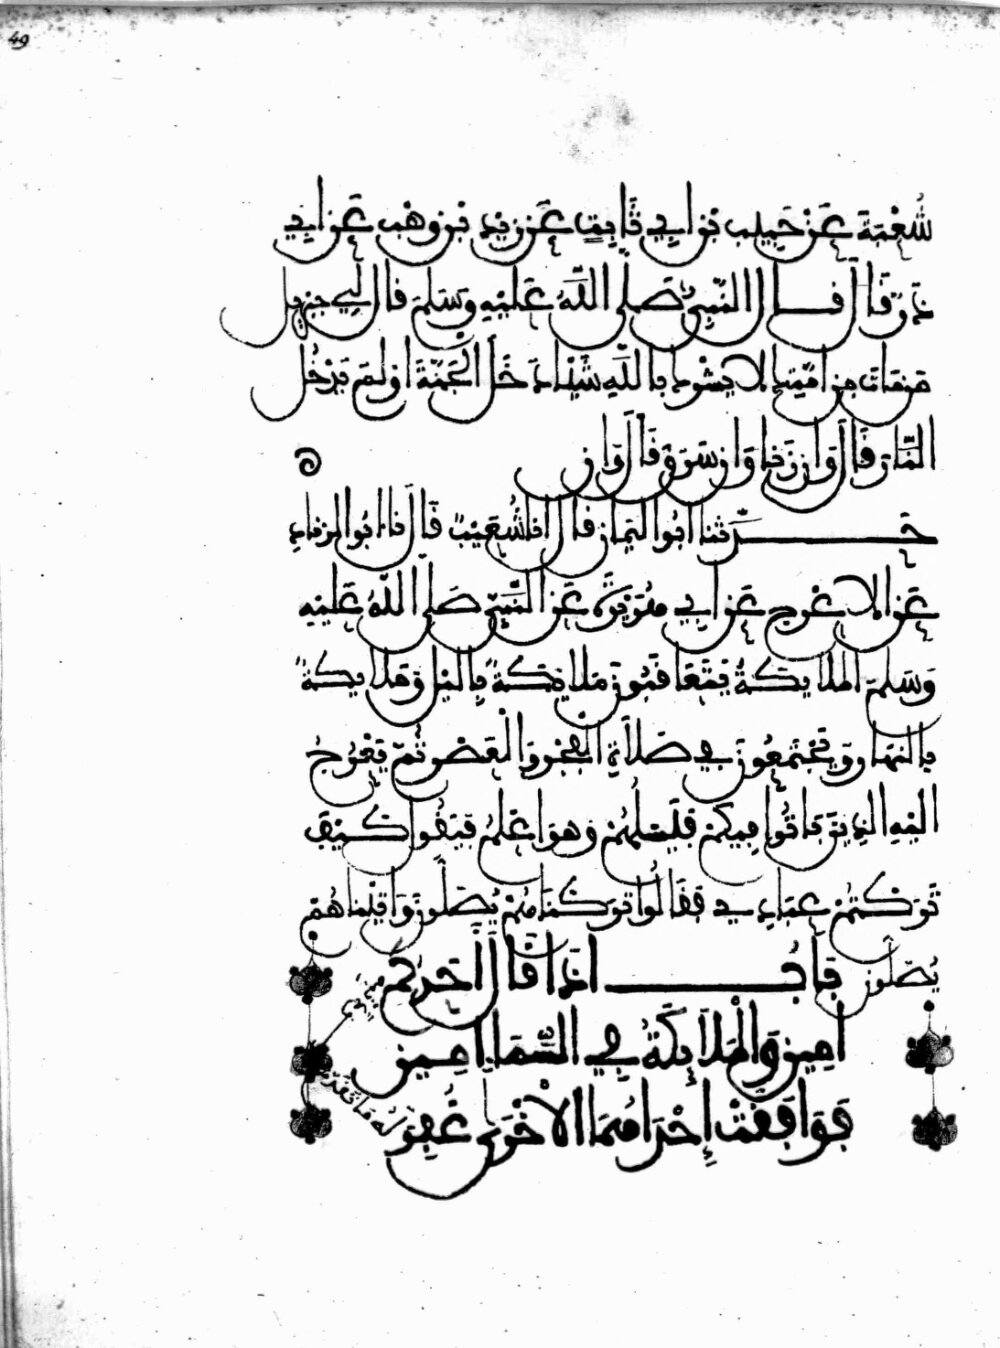 49
شُعْبَةَ عَنْ حَبِيبِ بْنِ ابِي ثَابِتٍ عَنْ زَيْدِ بْنِ وَهْبٍ عَنْ ابِي
ذَرٍّ قَالَ قــال النَّبِيُّ صَلَّى اللَّهُ عَلَيْهِ وَسَلَّمَ قال لِي جبريل
مَن مَاتَ مِن امَّتِكَ لا يُشْرِك بِاللَّهِ شَيْئًا دَخَلَ الْجَنَّةَ اوْ لَمْ يَدْخُل
النَّارَ قَالَ وَان زَنَى وَان سَرَقَ قَالَ وَان
حَـــدَّثنا ابُو الْيَمَان قال انا شُعَيْبٌ قَالَ نا ابُو الزناد
عَنِ الاعْرَج عَن ابِي هُرَيْرَةَ عَنِ النَّبِيِّ صَلَّى اللَّهُ عَلَيْهِ
وَسَلَّمَ الْمَلَايِكَةُ يَتَعَاقَبُونَ مَلَايِكَةٌ بِالليْل وَمَلَايِكَةٌ
بِالنهَار وَيَجْتَمِعُونَ فِي صَلَاةِ الْفَجْرِ وَالْعَصْرِ ثُمَّ يَعْرُجُ
اليْهِ الذِينَ بَاتُوا فِيكُمْ فَيَسْلُهُمْ وَهوَ اعْلَمُ فَيَقُولُ كَيْفَ
تَرَكْتُمْ عِبَادِي فَقَالُوا تَرَكْنَاهُمْ يُصَلُّونَ وَاتَيْنَاهُمْ
يُصَلُّونَ بَابُـــ اذَا قَالَ أَحَدُكُمْ
امِينَ وَالْمَلَايِكَةُ فِي السَّمَاءِ امِينَ
فَوَافَقَتْ إِحْدَاهُمَا الاخْرَى غُفِرَ
لَهُ مَا تَقَدَّمَ
مِن ذنبه